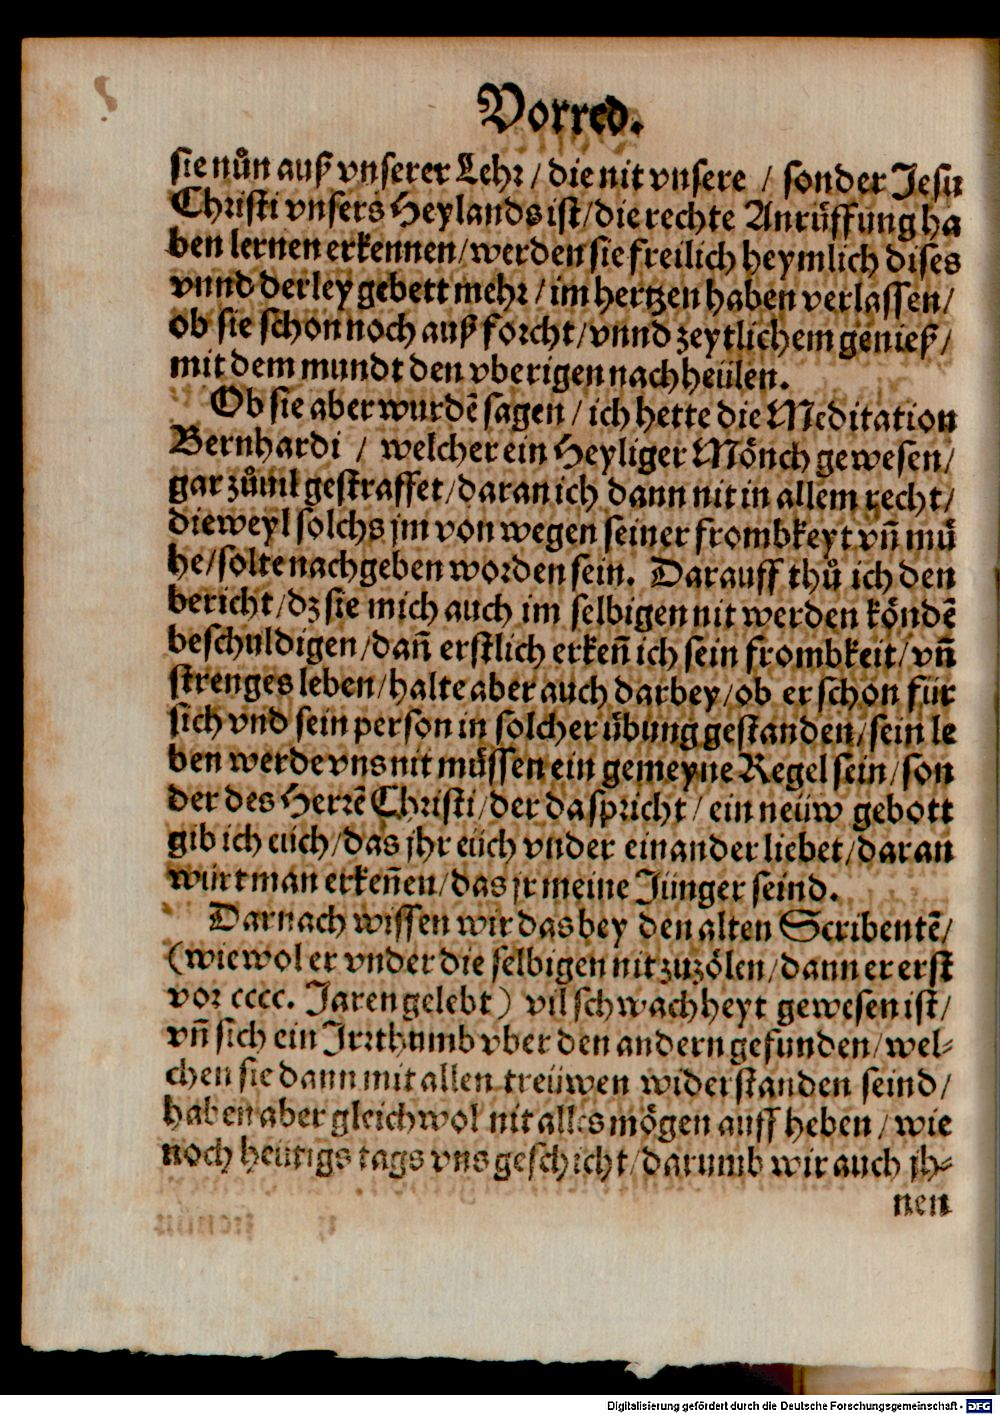 Vorred.
sie nůn auß vnserer Lehr / die nit vnsere / sonder Jesu
Christi vnsers Heylands ist / die rechte Anrůffung ha
ben lernen erkennen / werden sie freilich heymlich dises
vnnd derley gebett mehr / im hertzen haben verlassen /
ob sie schon noch auß forcht / vnnd zeytlichem genieß /
mit dem mundt den vberigen nach heülen.
Ob sie aber wurdẽ sagen / ich hette die Meditation
Bernhardi / welcher ein Heyliger Mönch gewesen /
gar zůuil gestraffet / daran ich dann nit in allem recht /
dieweyl solchs jm von wegen seiner frombkeyt vñ mü
he / solte nachgeben worden sein. Darauff thů ich den
bericht / dz sie mich auch im selbigen nit werden köndẽ
beschuldigen / dañ erstlich erkeñ ich sein frombkeit / vñ
strenges leben / halte aber auch darbey / ob er schon für
sich vnd sein person in solcher übung gestanden / sein le
ben werde vns nit müssen ein gemeyne Regel sein / son
der des Herrẽ Christi / der da spricht / ein neüw gebott
gib ich eüch / das jhr eüch vnder einander liebet / daran
würt man erkeñen / das jr meine Jünger seind.
Darnach wissen wir das bey den alten Scribentẽ /
(wiewol er vnder die selbigen nit zuzölen / dann er erst
vor cccc. Jaren gelebt) vil schwachheyt gewesen ist /
vñ sich ein Jrrthumb vber den andern gefunden / wel-
chen sie dann mit allen treüwen widerstanden seind /
haben aber gleichwol nit alles mögen auff heben / wie
noch heütigs tags vns geschicht / darumb wir auch jh-
nen
Digitalisierung gefördert durch die Deutsche Forschungsgemeinschaft - DFG